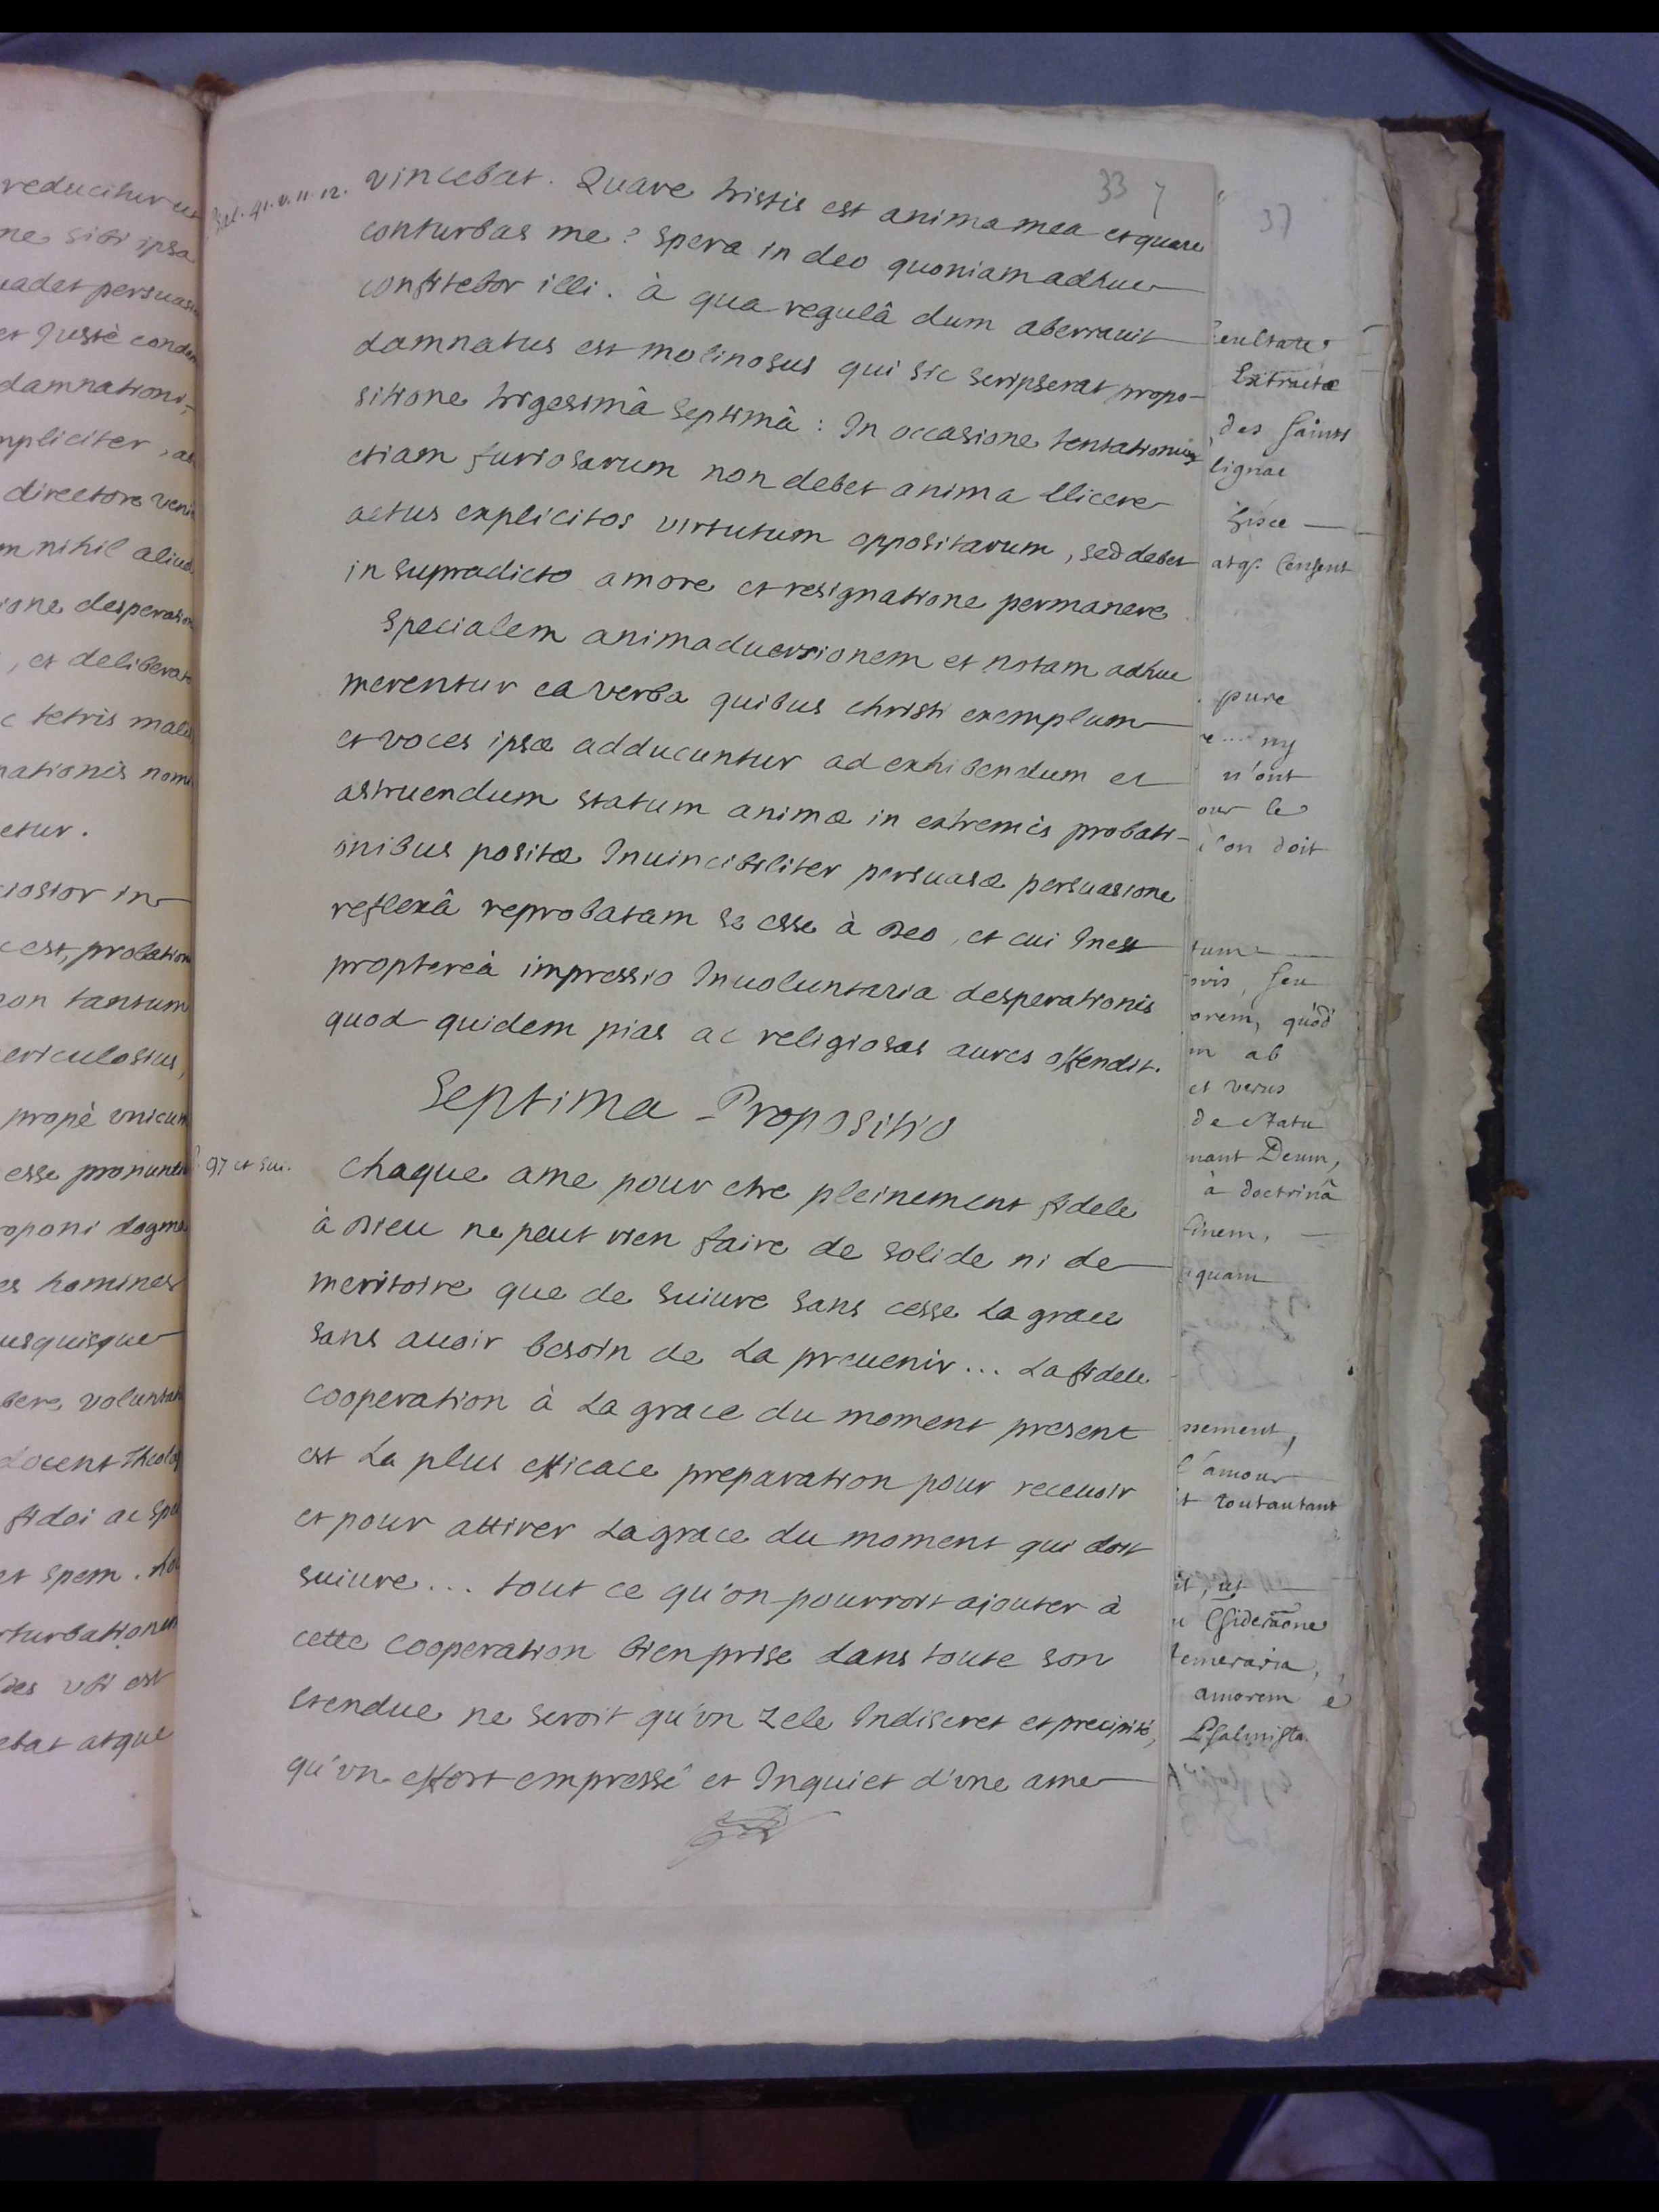 33 7
37
Psal. 41. v. 11. 12.
vincebat. Quare tristis est anima mea et quare
conturbas me? spera in deo quoniam adhuc
confitebor illi. à qua regulâ dum aberrauit
damnatus est molinosus qui sic scripserat propo-
sitione trigesimâ septimâ: In occasione tentationum
etiam furiosarum non debet anima Elicere
actus explicitos virtutum oppositarum, sed debet
in supradicto amore et resignatione permanere.
specialem animaduersionem et notam adhuc
merentur ea verba quibus christi exemplum
et voces ipsæ adducuntur ad exhibendum et
astruendum statum animæ in extremis probati-
onibus positæ Inuincibiliter persuasæ persuasione
reflexâ reprobatam se esse à Deo, et cui Inest
proptereà impressio Inuoluntaria desperationis
quod quidem pias ac religiosas aures offendit.
Septima Propositio
97 et sui.
Chaque ame pour etre pleinement fidele
à Dieu ne peut rien faire de solide ni de
meritoire que de suiure sans cesse La grace
sans auoir besoin de La preuenir... La fidele
cooperation à La grace du moment present
est La plus efficace preparation pour receuoir
et pour attirer La grace du moment qui doit
suiure... tout ce qu'on pourroit ajouter à
cette cooperation bien prise dans toute son
etendue ne seroit qu'vn zele Indiscret et precipité,
qu'vn effort empressé et Inquiet d'vne ame
reducitur ut
ne sibi ipsa
uadet persuasi
et Justè condem
damnationi,
mpliciter, a
directore veni
m nihil aliud
ione desperation
, et deliberato
c tetris malis
nationis nomi
etur.
ciosior in
c est, probation
non tantum
ericulosius,
propè vnicum
esse pronunti
roponi dogma
es homines
usquisque
bere voluntat
docent Theolog
fidei ac spei
et spem.
rturbationem
des vbi est
ebat atque
cultate
Extractæ
des Saints
lignac
hisce
atq. Censent
pure
n'ont
our le
l'on doit
tum
oris, seu
orem, quòd
m ab
et verus
de statu
nant Deum,
à doctrinâ
finem,
quam
ssement,
l'amour
t tout autant
it, ut
temeraria,
amorem
Psalmista